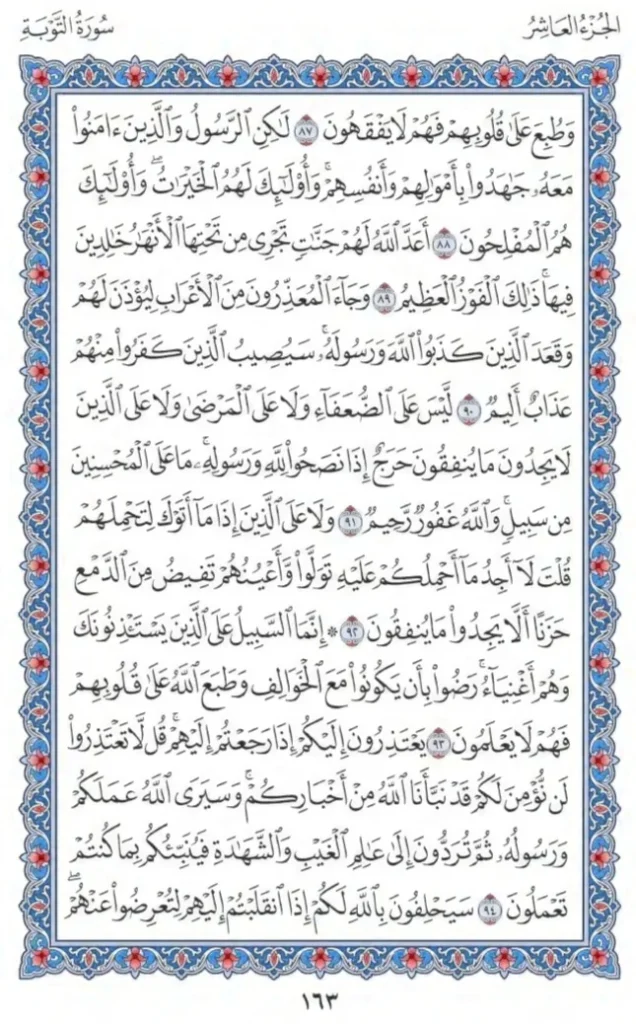 الجُزْءُ العَاشِرُ
سُورَةُ التَّوْبَةِ
وَطُبِعَ عَلَىٰ قُلُوبِهِمْ فَهُمْ لَا يَفْقَهُونَ ٨٧ لَٰكِنِ ٱلرَّسُولُ وَٱلَّذِينَ ءَامَنُوا۟
مَعَهُۥ جَٰهَدُوا۟ بِأَمْوَٰلِهِمْ وَأَنفُسِهِمْۚ وَأُو۟لَٰٓئِكَ لَهُمُ ٱلْخَيْرَٰتُۖ وَأُو۟لَٰٓئِكَ
هُمُ ٱلْمُفْلِحُونَ ٨٨ أَعَدَّ ٱللَّهُ لَهُمْ جَنَّٰتٍ تَجْرِى مِن تَحْتِهَا ٱلْأَنْهَٰرُ خَٰلِدِينَ
فِيهَاۚ ذَٰلِكَ ٱلْفَوْزُ ٱلْعَظِيمُ ٨٩ وَجَآءَ ٱلْمُعَذِّرُونَ مِنَ ٱلْأَعْرَابِ لِيُؤْذَنَ لَهُمْ
وَقَعَدَ ٱلَّذِينَ كَذَبُوا۟ ٱللَّهَ وَرَسُولَهُۥۚ سَيُصِيبُ ٱلَّذِينَ كَفَرُوا۟ مِنْهُمْ
عَذَابٌ أَلِيمٌ ٩٠ لَّيْسَ عَلَى ٱلضُّعَفَآءِ وَلَا عَلَى ٱلْمَرْضَىٰ وَلَا عَلَى ٱلَّذِينَ
لَا يَجِدُونَ مَا يُنفِقُونَ حَرَجٌ إِذَا نَصَحُوا۟ لِلَّهِ وَرَسُولِهِۦۚ مَا عَلَى ٱلْمُحْسِنِينَ
مِن سَبِيلٍۚ وَٱللَّهُ غَفُورٌ رَّحِيمٌ ٩١ وَلَا عَلَى ٱلَّذِينَ إِذَا مَآ أَتَوْكَ لِتَحْمِلَهُمْ
قُلْتَ لَآ أَجِدُ مَآ أَحْمِلُكُمْ عَلَيْهِ تَوَلَّوا۟ وَّأَعْيُنُهُمْ تَفِيضُ مِنَ ٱلدَّمْعِ
حَزَنًا أَلَّا يَجِدُوا۟ مَا يُنفِقُونَ ٩٢ ۞ إِنَّمَا ٱلسَّبِيلُ عَلَى ٱلَّذِينَ يَسْتَـْٔذِنُونَكَ
وَهُمْ أَغْنِيَآءُۚ رَضُوا۟ بِأَن يَكُونُوا۟ مَعَ ٱلْخَوَالِفِ وَطَبَعَ ٱللَّهُ عَلَىٰ قُلُوبِهِمْ
فَهُمْ لَا يَعْلَمُونَ ٩٣ يَعْتَذِرُونَ إِلَيْكُمْ إِذَا رَجَعْتُمْ إِلَيْهِمْۚ قُل لَّا تَعْتَذِرُوا۟
لَن نُّؤْمِنَ لَكُمْ قَدْ نَبَّأَنَا ٱللَّهُ مِنْ أَخْبَارِكُمْۚ وَسَيَرَى ٱللَّهُ عَمَلَكُمْ
وَرَسُولُهُۥ ثُمَّ تُرَدُّونَ إِلَىٰ عَٰلِمِ ٱلْغَيْبِ وَٱلشَّهَٰدَةِ فَيُنَبِّئُكُم بِمَا كُنتُمْ
تَعْمَلُونَ ٩٤ سَيَحْلِفُونَ بِٱللَّهِ لَكُمْ إِذَا ٱنقَلَبْتُمْ إِلَيْهِمْ لِتُعْرِضُوا۟ عَنْهُمْۖ
١٦٣